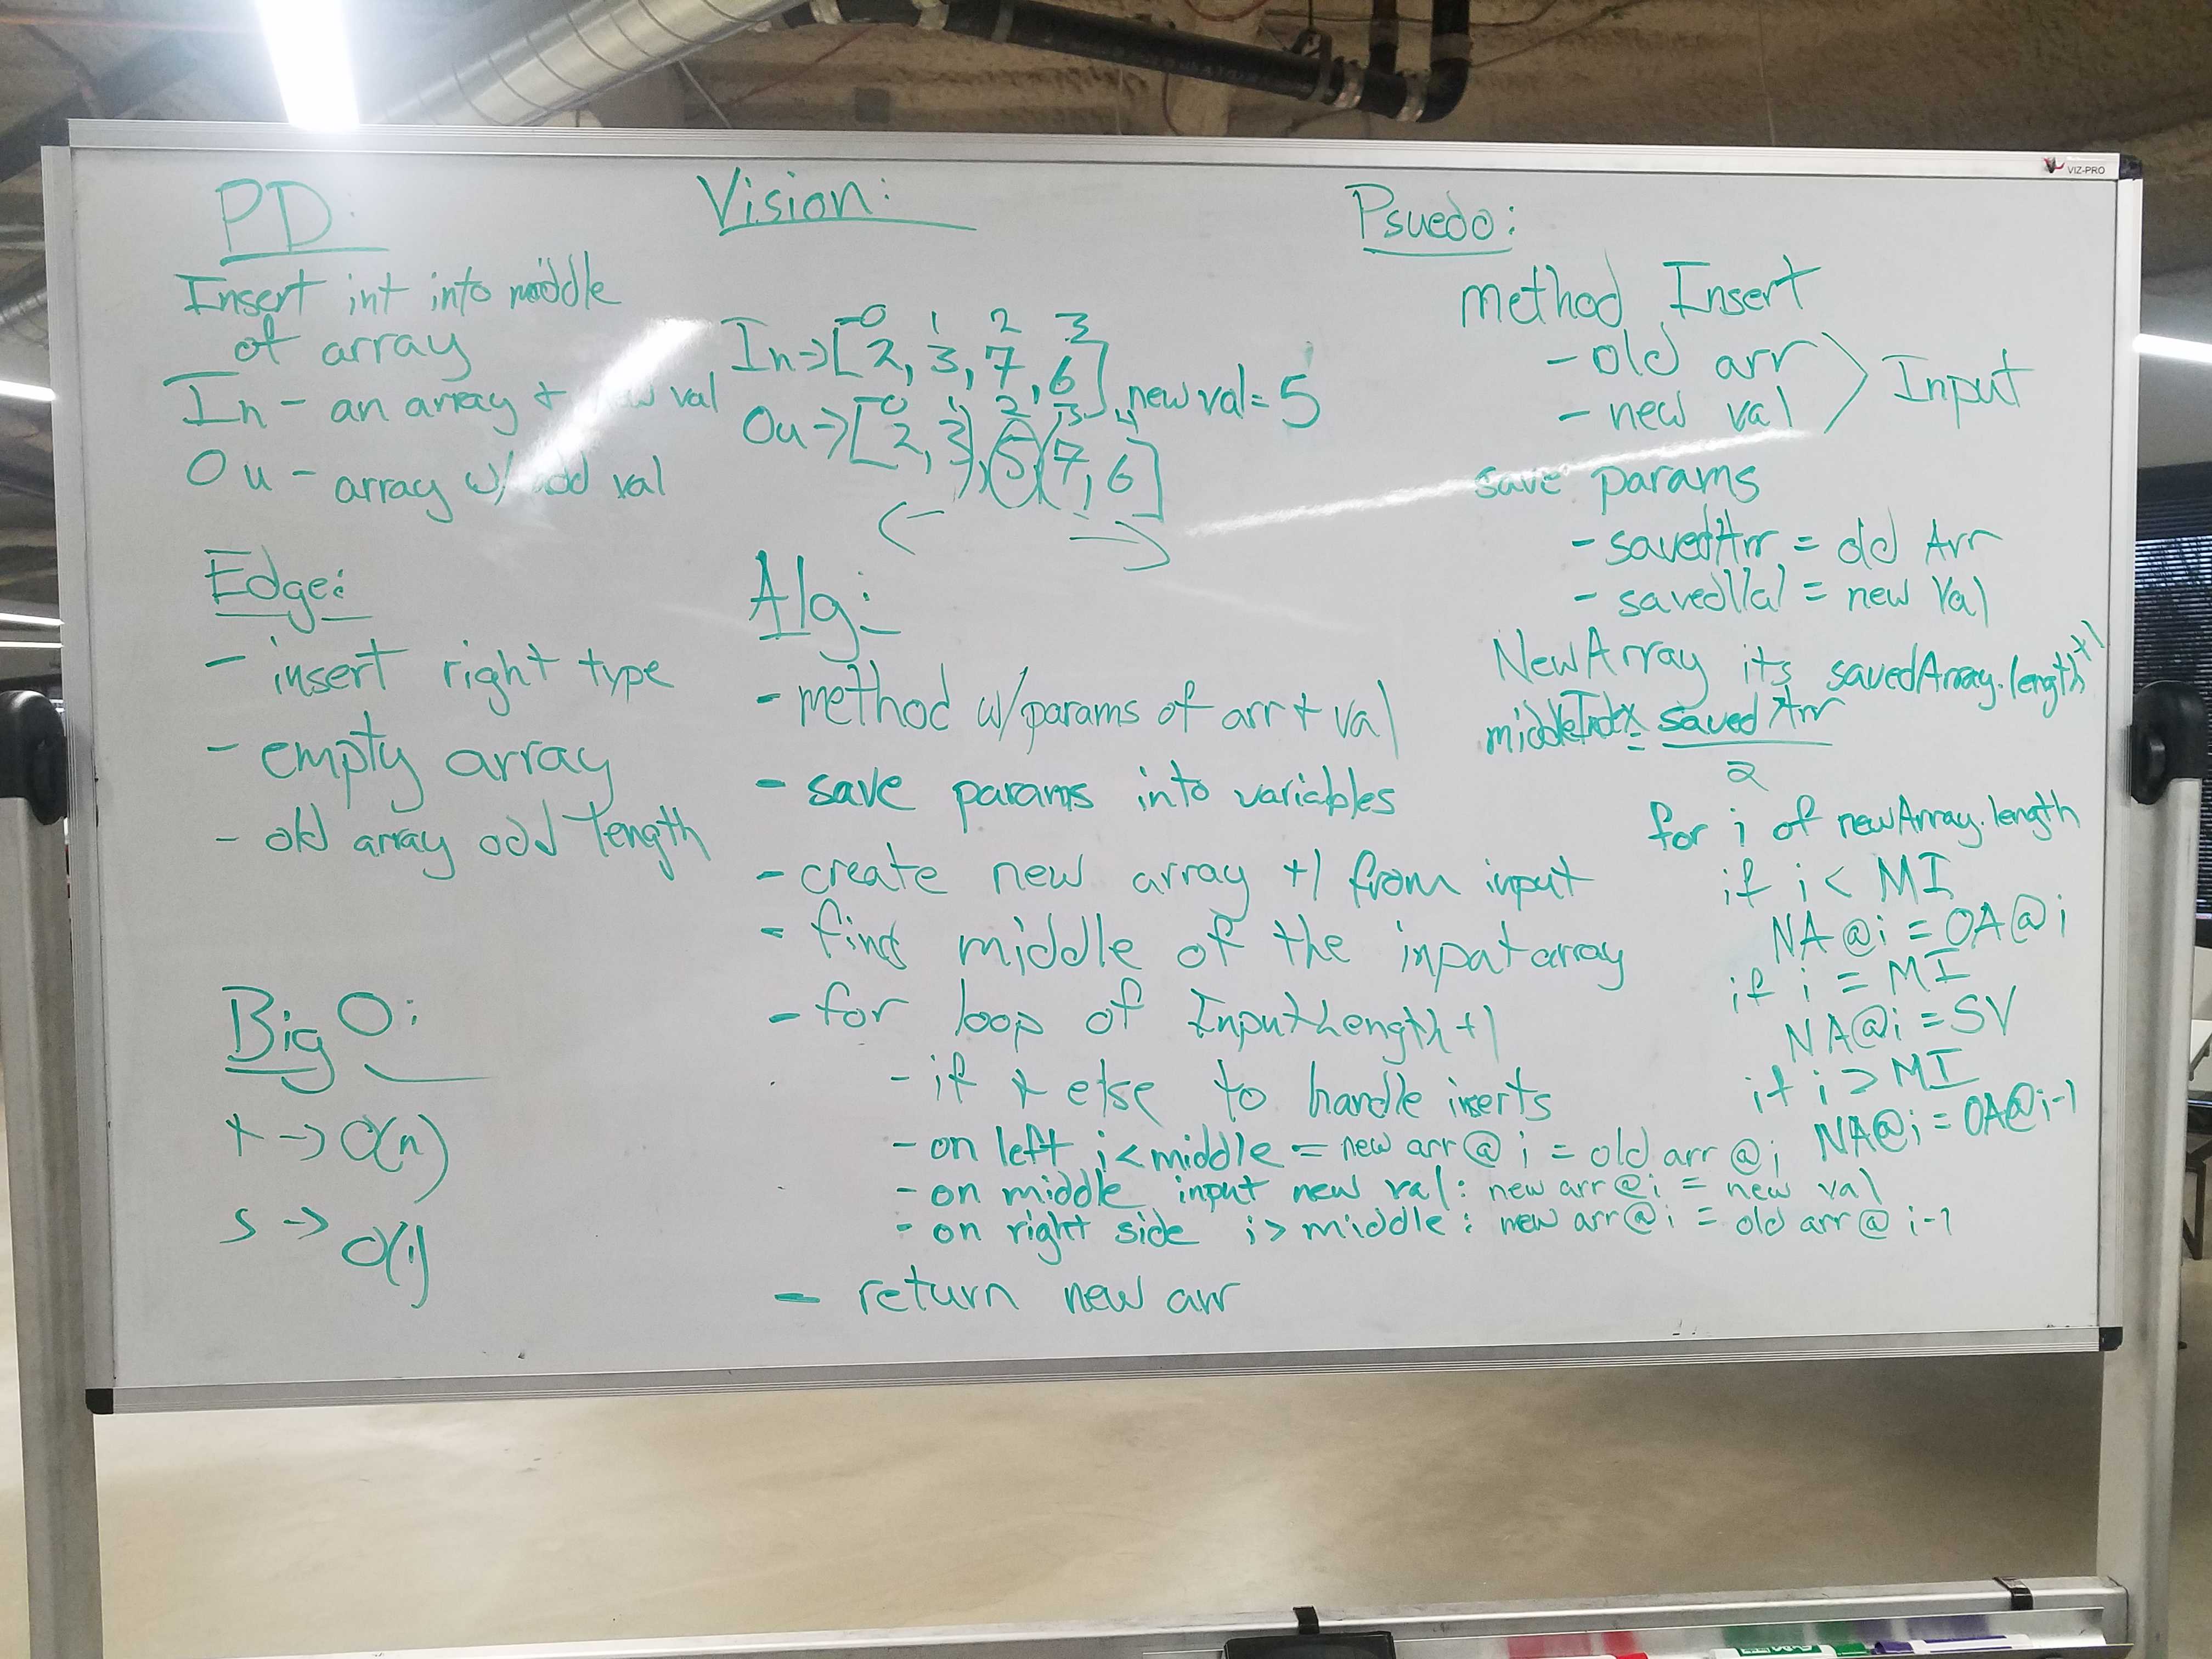 VIZ-PRO
PD:
Insert int into middle
of array
In - an array + new val
Ou - array w/ add val
Edge:
- insert right type
- empty array
- old array odd length
Big O:
t -> O(n)
s -> O(1)
Vision:
0 1 2 3
In => [2, 3, 7, 6], new val = 5
0 1 2 3 4
Ou => [2, 3), (5) (7, 6]
<- ->
Alg:
- method w/params of arr + val
- save params into variables
- create new array +1 from input
- find middle of the input array
- for loop of InputLength +1
- if + else to handle inserts
- on left i < middle = new arr @ i = old arr @ i
- on middle input new val: new arr @ i = new val
- on right side i > middle: new arr @ i = old arr @ i-1
- return new arr
Psuedo:
method Insert
- old arr
- new val > Input
save params
- savedArr = old Arr
- savedVal = new Val
NewArray its savedArray.length +1
middleIndex = saved Arr
2
for i of newArray.length
if i < MI
NA @ i = OA @ i
if i = MI
NA @ i = SV
if i > MI
NA @ i = OA @ i-1